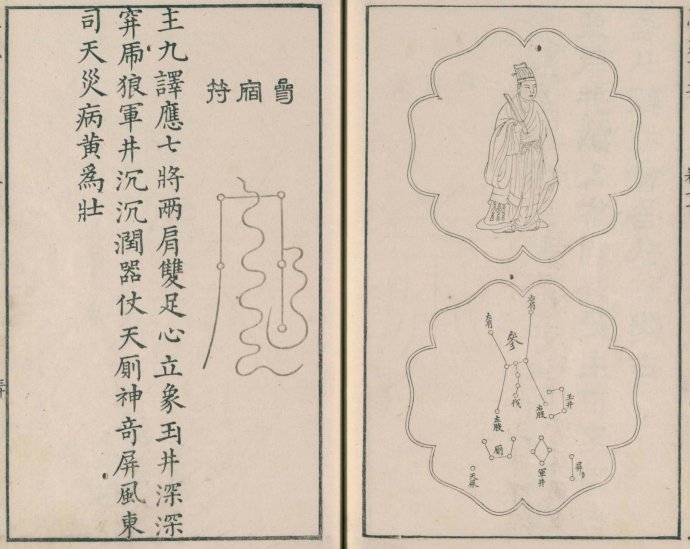 右肩
左肩
參
伐
玉井
廁
軍井
屏
天屎
曑宿符
主九譯應七將兩肩雙足心立象玉井深深
穽乕狼軍井沉沉潤器仗天廁神竒屏風東
司天災病黄爲壯